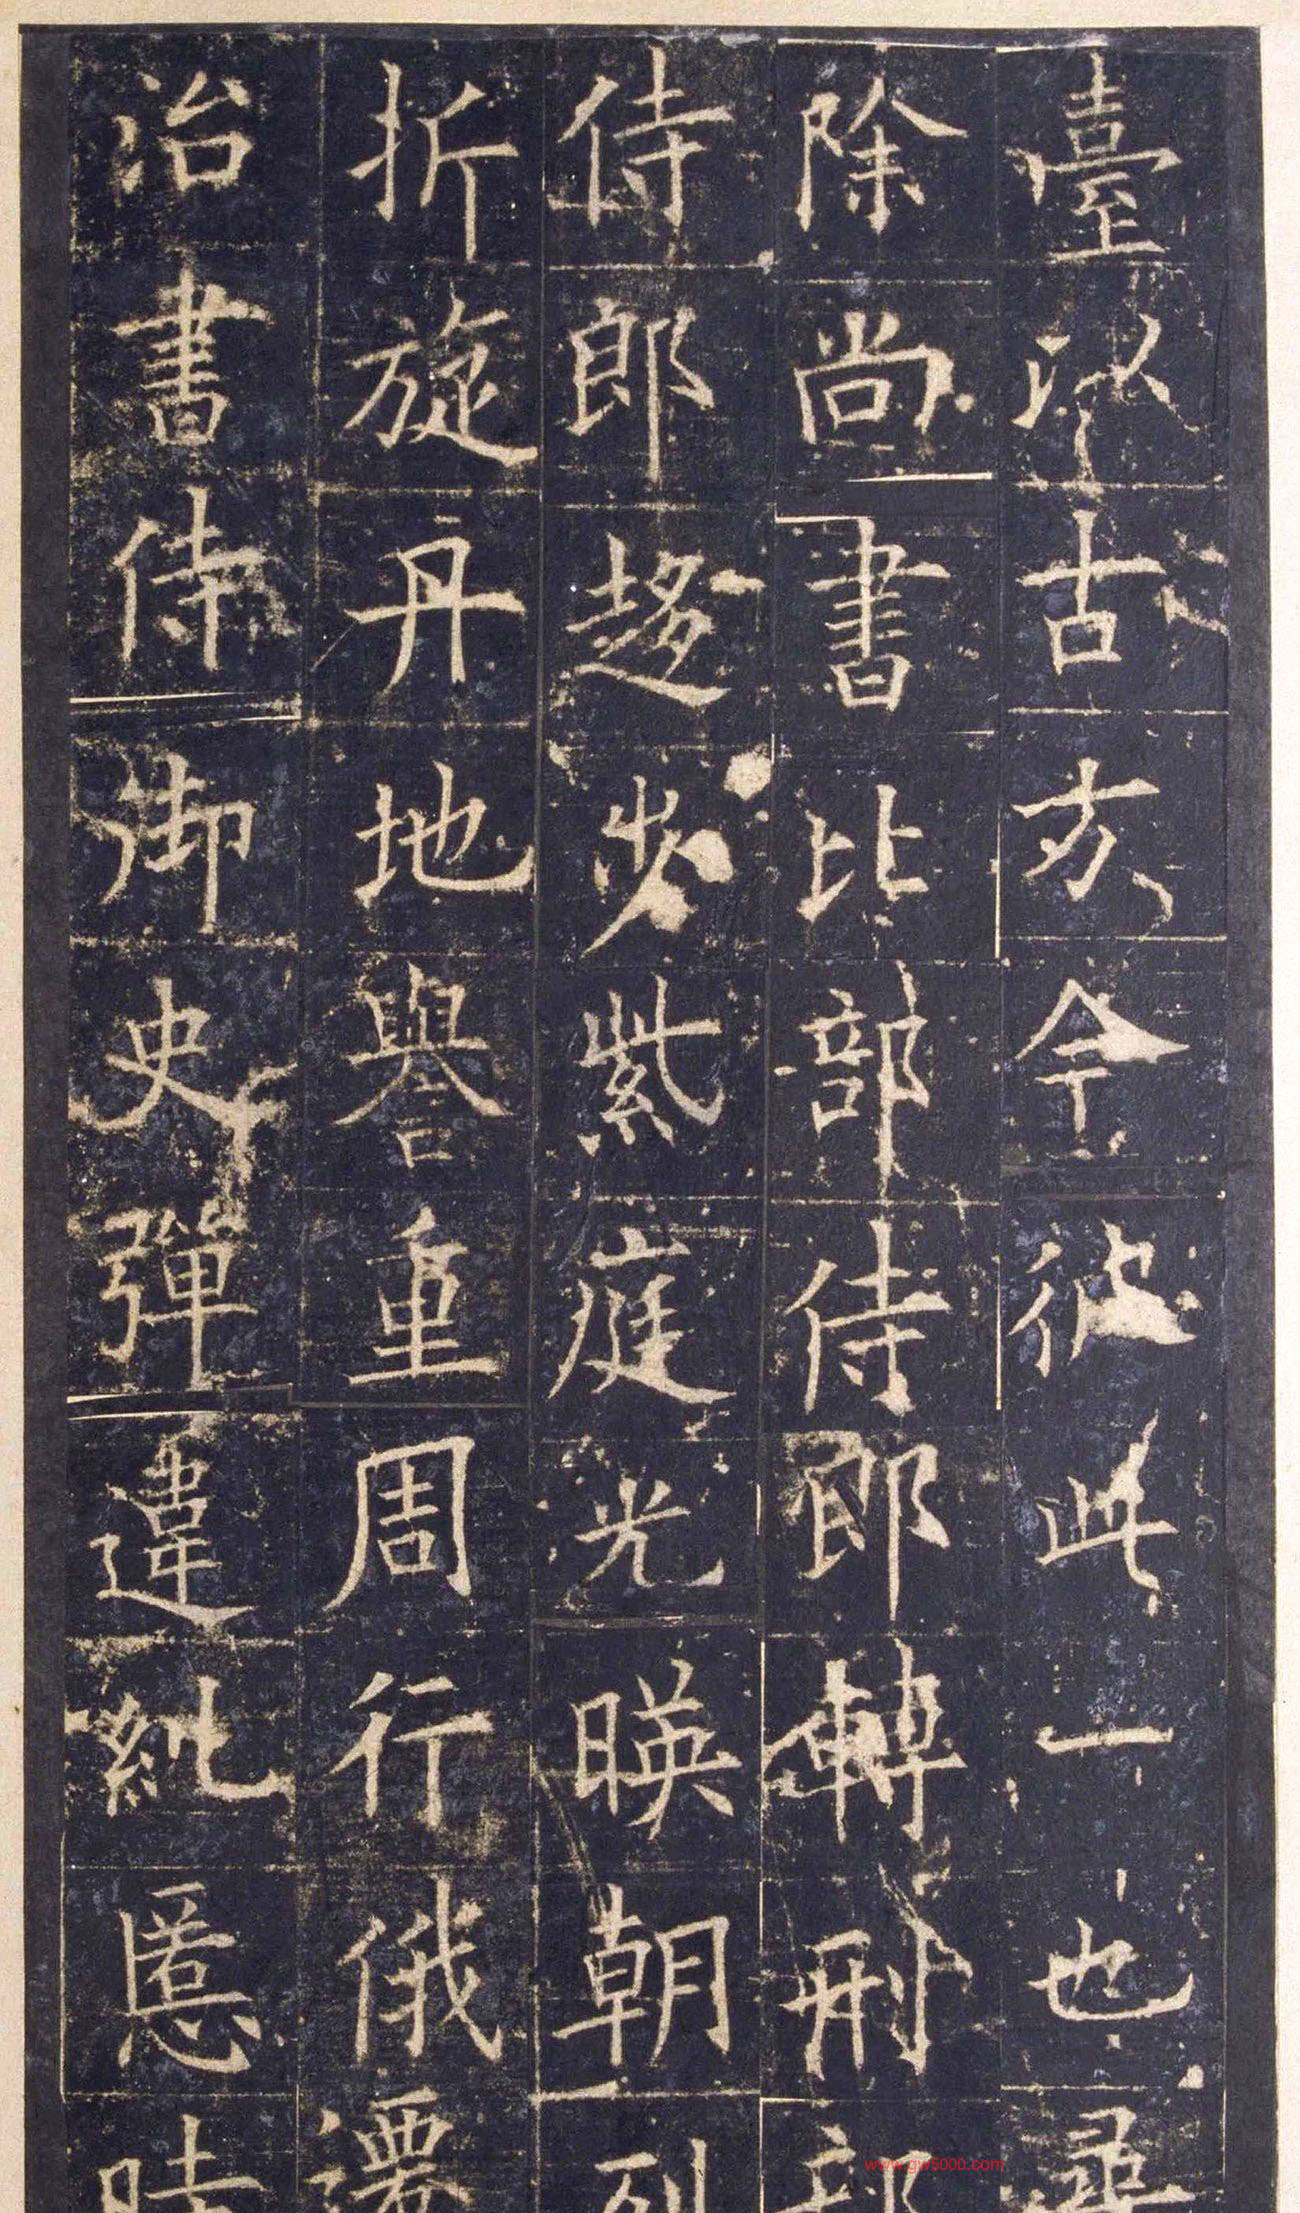 臺以古方今彼此一也尋
除尚書比部侍郎轉刑部
侍郎趍步紫庭光暎朝列
折旋丹地譽重周行俄遷
治書侍御史彈違糺慝時
www.gw5000.com